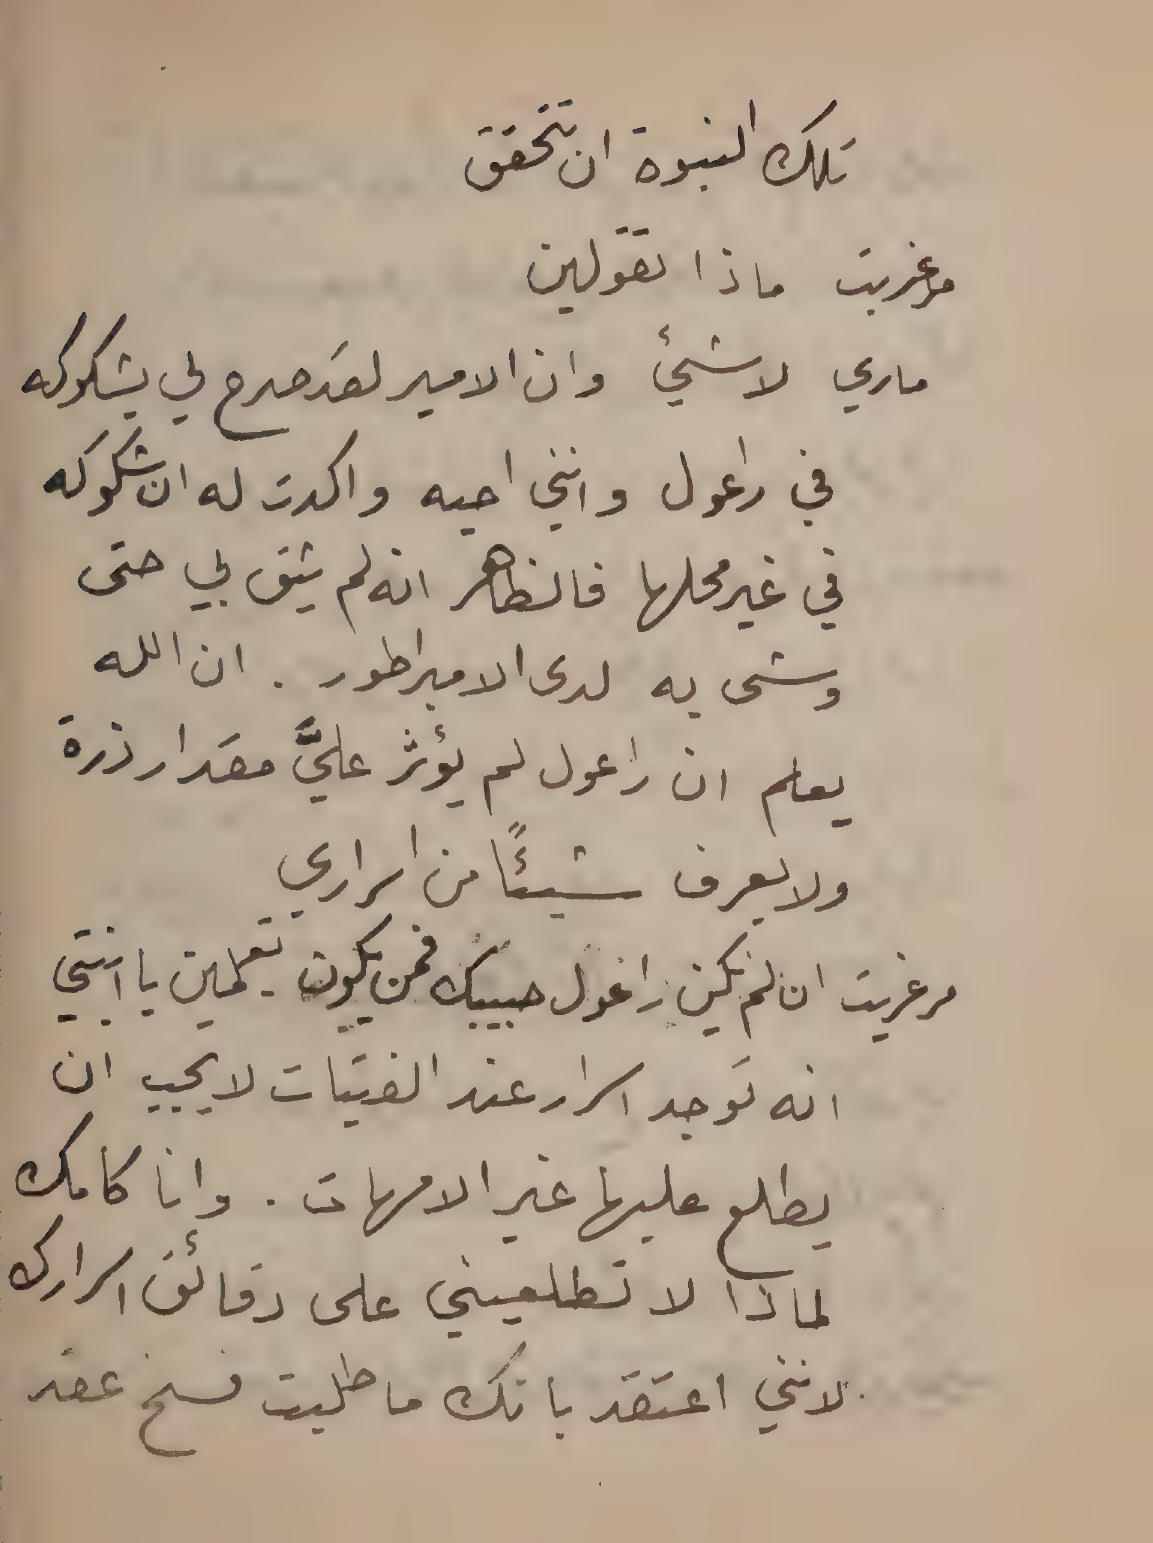 تلك النبوة ان تتحقق
مرغريت ماذا تقولين
ماري لا شيئ وان الامير لقد صرح لي بشكوكه
في راعول وانني احبه واكدت له ان شكوكه
في غير محلها فالظاهر انه لم يثق بي حتى
وشى به لدى الامبراطور . ان الله
يعلم ان راعول لم يؤثر عليَّ مقدار ذرة
ولا يعرف شيئًا من اسراري
مرغريت ان لم يكن راغول حبيبك فمن يكون تعلمين يا ابنتي
انه توجد اسرار عند الفتيات لا يجب ان
يطلع عليها غير الامهات . وانا كامك
لماذا لا تطلعيني على دقائق اسرارك
لانني اعتقد بانك ما طلبت فسخ عقد